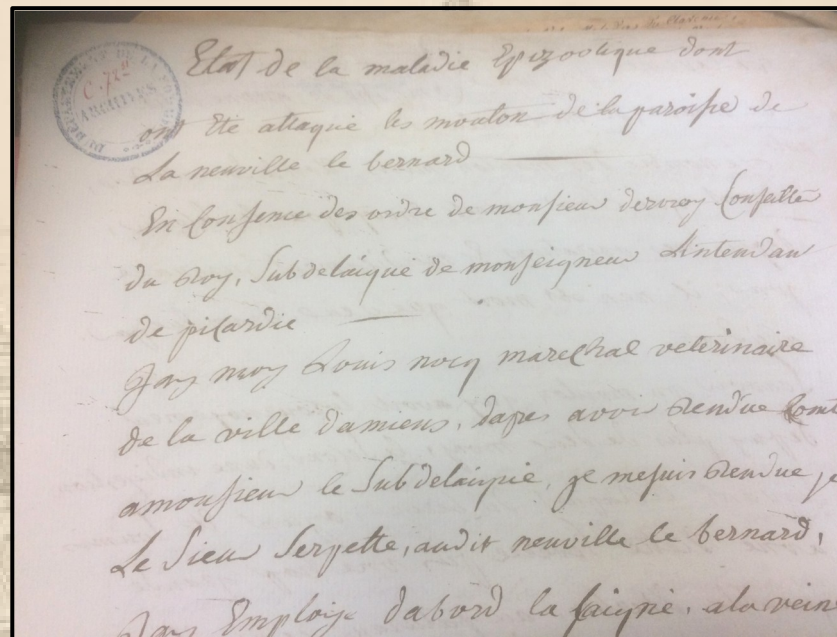 DÉPARTEMENT DE LA SOMME
ARCHIVES
Etat de la maladie Epizootique dont
ont Ete attaqué les mouton de la paroisse de
La neuville le bernard
En Consence des ordre de monsieur derveoy Conseiller
du Roy, Subdelaiqué de monseigneur Lintendan
de picardie
Jay moy Louis nocq marechal veterinaire
de la ville damiens, dapres avoir Rendue Comt
amonsieur le Subdelaiqué, je mesuis Rendue
Le Sieur Serpette, audit neuville le bernard,
Jay Employe dabord la saigné, ala veine